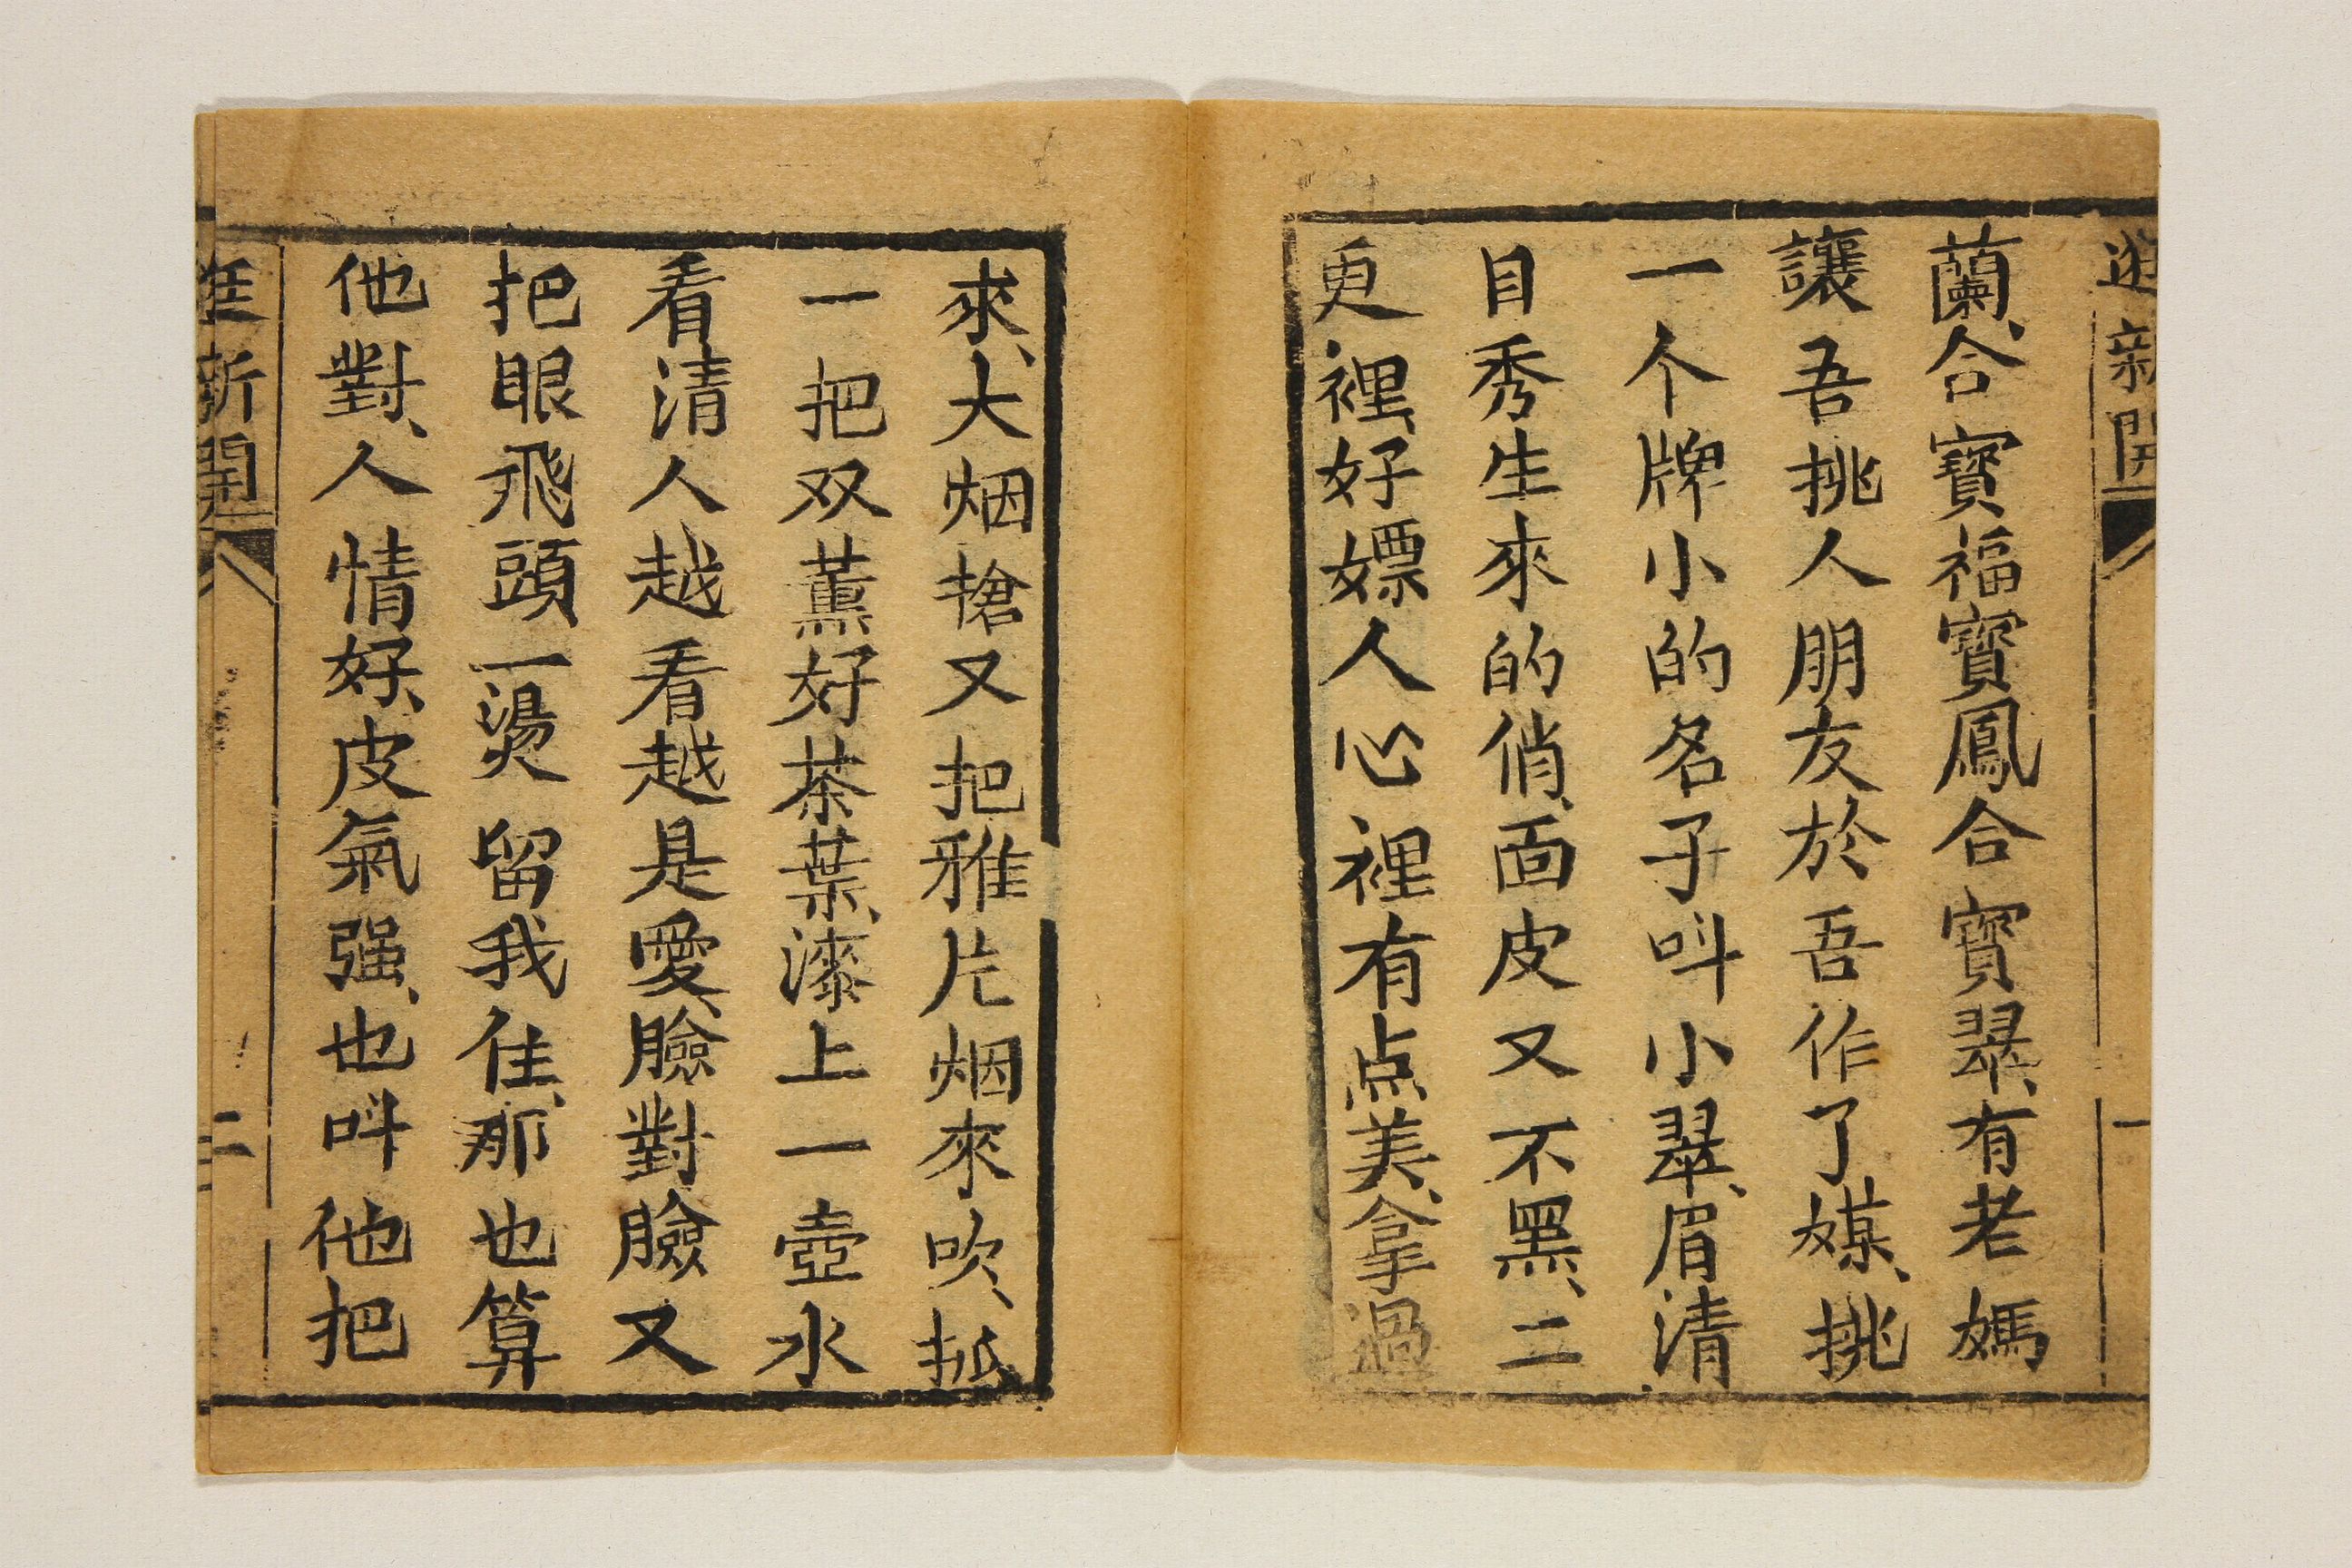 逛新開
一
蘭、合寳福寳鳳合寳翠、有老媽
讓吾挑人朋友於吾作了媒、挑
一个牌小的名子呌小翠、眉清
目秀生來的俏、面皮又不黑、二
更裡、好嫖人心裡有点美、拿過
來、大烟搶又把雅片烟來吹、抵
一把双薰好茶葉、漆上一壺水
看清人越看越是愛、臉對臉又
把眼飛頭一燙留我住、那也算
他對、人情好、皮氣强、也呌他把
逛新開
二